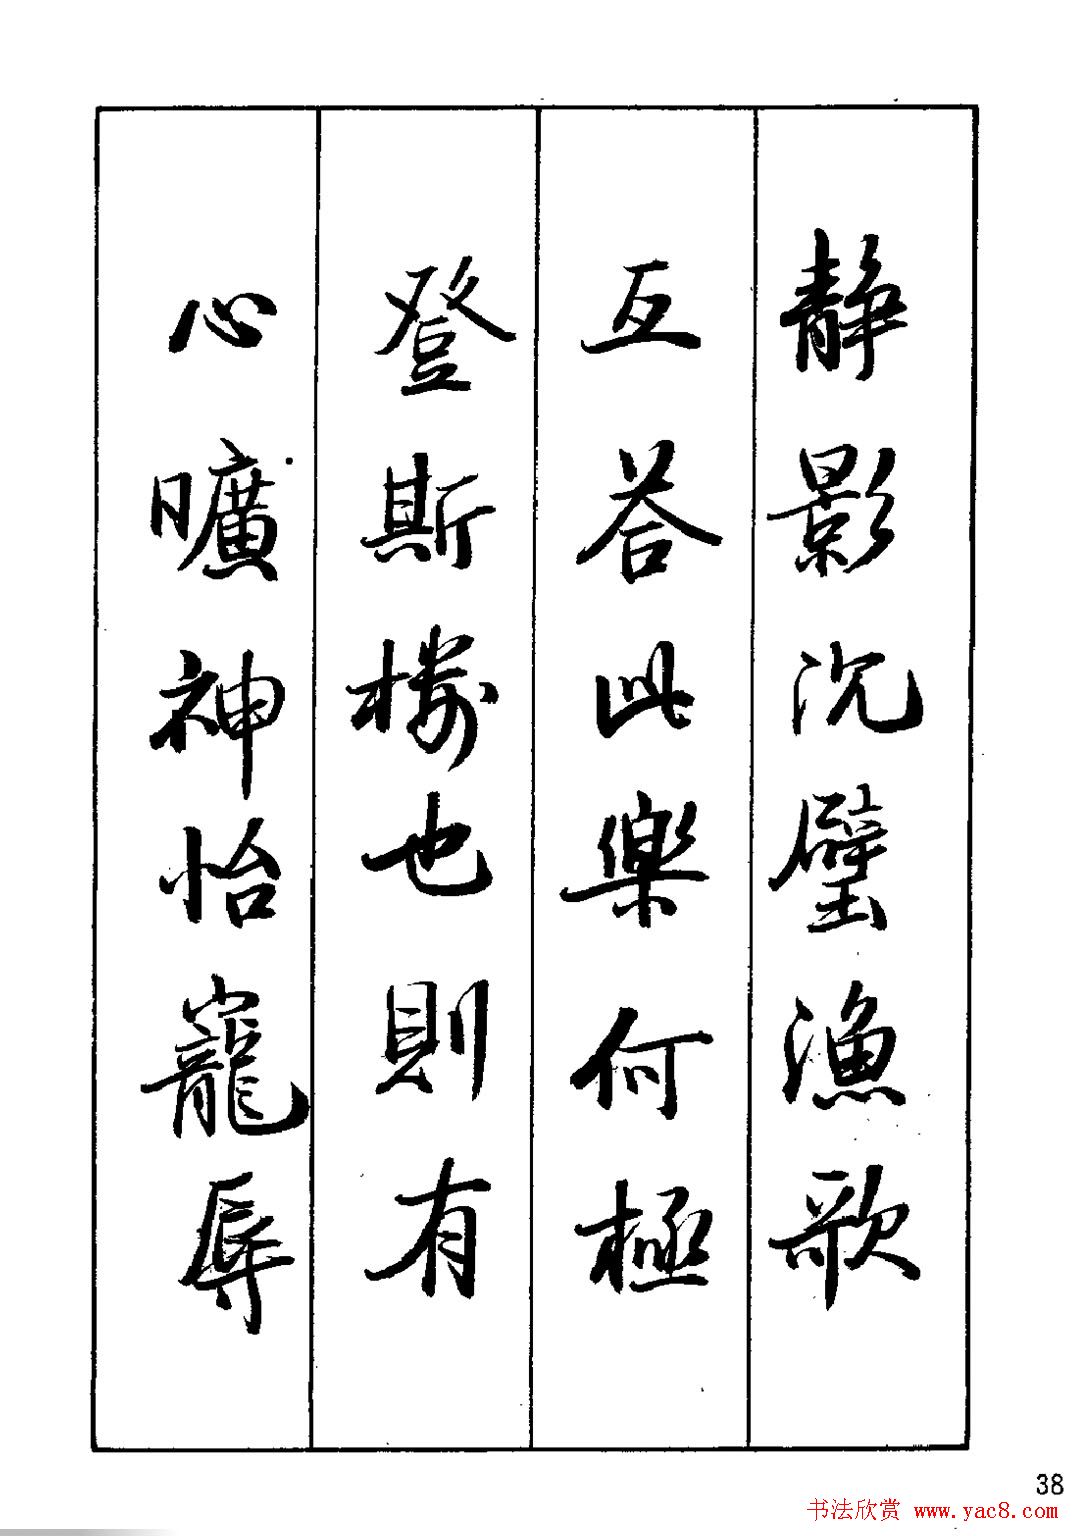 静影沉璧漁歌
互荅此樂何極
登斯樓也則有
心曠神怡寵辱
38
书法欣赏 www.yac8.com